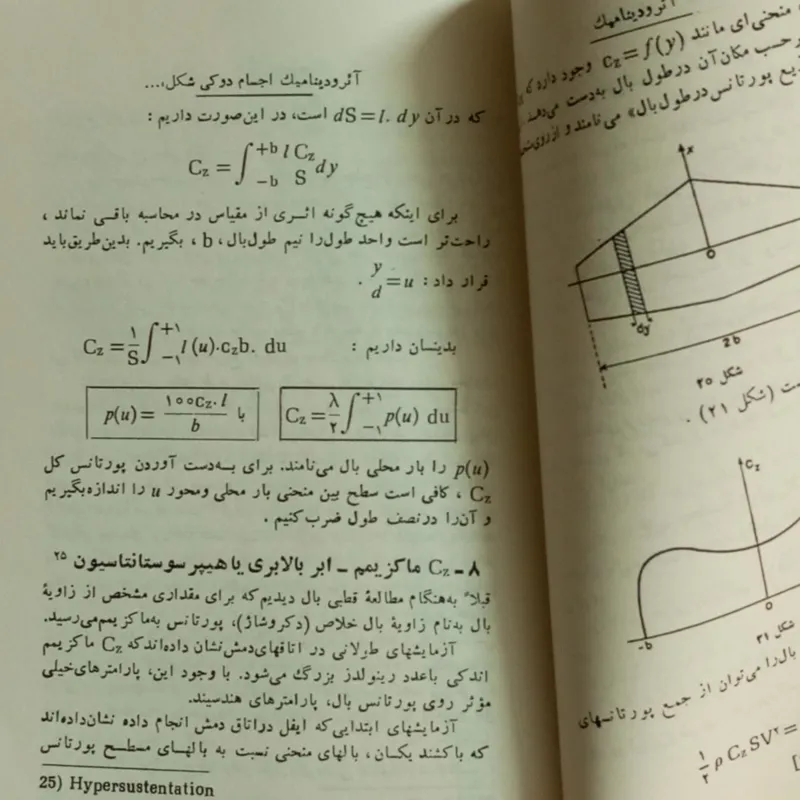 آئرودینامیك اجسام دوکی شکل،...
که در آن dS=l. dy است، در این‌صورت داریم :
C_z = ∫_{-b}^{+b} \frac{l C_z}{S} dy
برای اینکه هیچ‌گونه اثـری از مقیاس در محاسبه باقـی نماند ،
راحت‌تر است واحد طول‌را نیم طول‌بال، b ، بگیریم. بدین‌طریق‌باید
قرار داد : \frac{y}{d}=u .
بدینسان داریم : C_z = \frac{۱}{S} ∫_{-۱}^{+۱} l (u).c_z b. du
C_z = \frac{λ}{۲} ∫_{-۱}^{+۱} p(u) du با p(u) = \frac{۱۰۰c_z. l}{b}
p(u) را بار محلی بال می‌نامند. برای بـه‌دست آوردن پورتانس کل
C_z ، کافی است سطح بین منحنی بار محلی ومحور u را اندازه‌بگیریم
و آن‌را درنصف طول ضرب‌کنیم .
۸ ـ C_z ماکزیمم ـ ابر بالابری یا هیپرسوستانتاسیون ۲۵
قبلاً به‌هنگام مطالعهٔ قطبی بال دیدیم‌که برای مقداری مشخص از زاویهٔ
بال به‌نام زاویهٔ بال خلاص (دکروشاژ)، پورتانس به‌ماکزیمم‌می‌رسید.
آزمایشهای طولانی در اتاقهای‌دمش‌نشان داده‌اندکه C_z ماکزیمم
اندکی باعدد رینولدز بزرگ می‌شود. با وجود این، پارامترهای‌خیلی
مؤثر روی پورتانس بال، پارامترهای هندسیند.
آزمایشهای ابتدایی‌که ایفل دراتاق دمش انجام داده نشان‌داده‌اند
که باکشند یکسان، بالهای منحنی نسبت به بالهـای مسطـح پورتانس
25) Hypersustentation
آئرودینامیك
منحنی‌ای مانند c_z=f(y) وجود دارد که
برحسب مکان‌آن درطول بال به‌دست می‌دهد.
پورتانس درطول‌بال» می‌نامند و ازروی
x
o
dy
2b
شکل ۲۰
(شکل ۲۱) .
c_z
-b
o
شکل ۲۱
بال‌را می‌توان از جمع پورتانسهای
\frac{۱}{۲} ρ C_z SV^۲ =